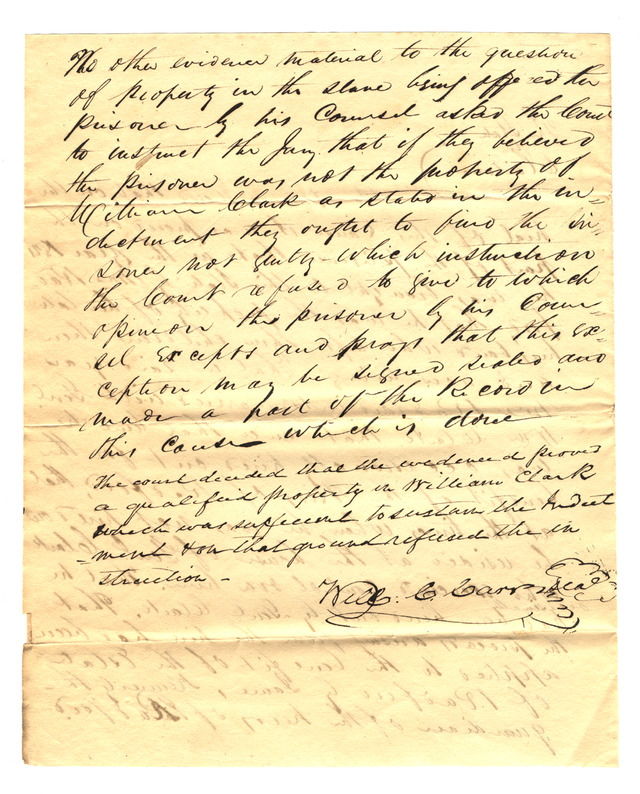 No other evidence material to the question
of property in the slave being offered the
prisoner by his Counsel asked the Court
to instruct the Jury that if they believed
the prisoner was not the property of
William Clark as stated in the in-
dictment they ought to find the pri-
soner not guilty - which instruction
the Court refused to give to which
opinion the prisoner by his Coun-
sel Excepts and prays that this Ex-
ception may be signed sealed and
made a part of the Record in
this cause which is done
The court decided that the evidence proved
a qualified property in William Clark
which was sufficent to sustain the Indict
-ment & on that ground refused the in
struction -
Will. C. Carr Seal